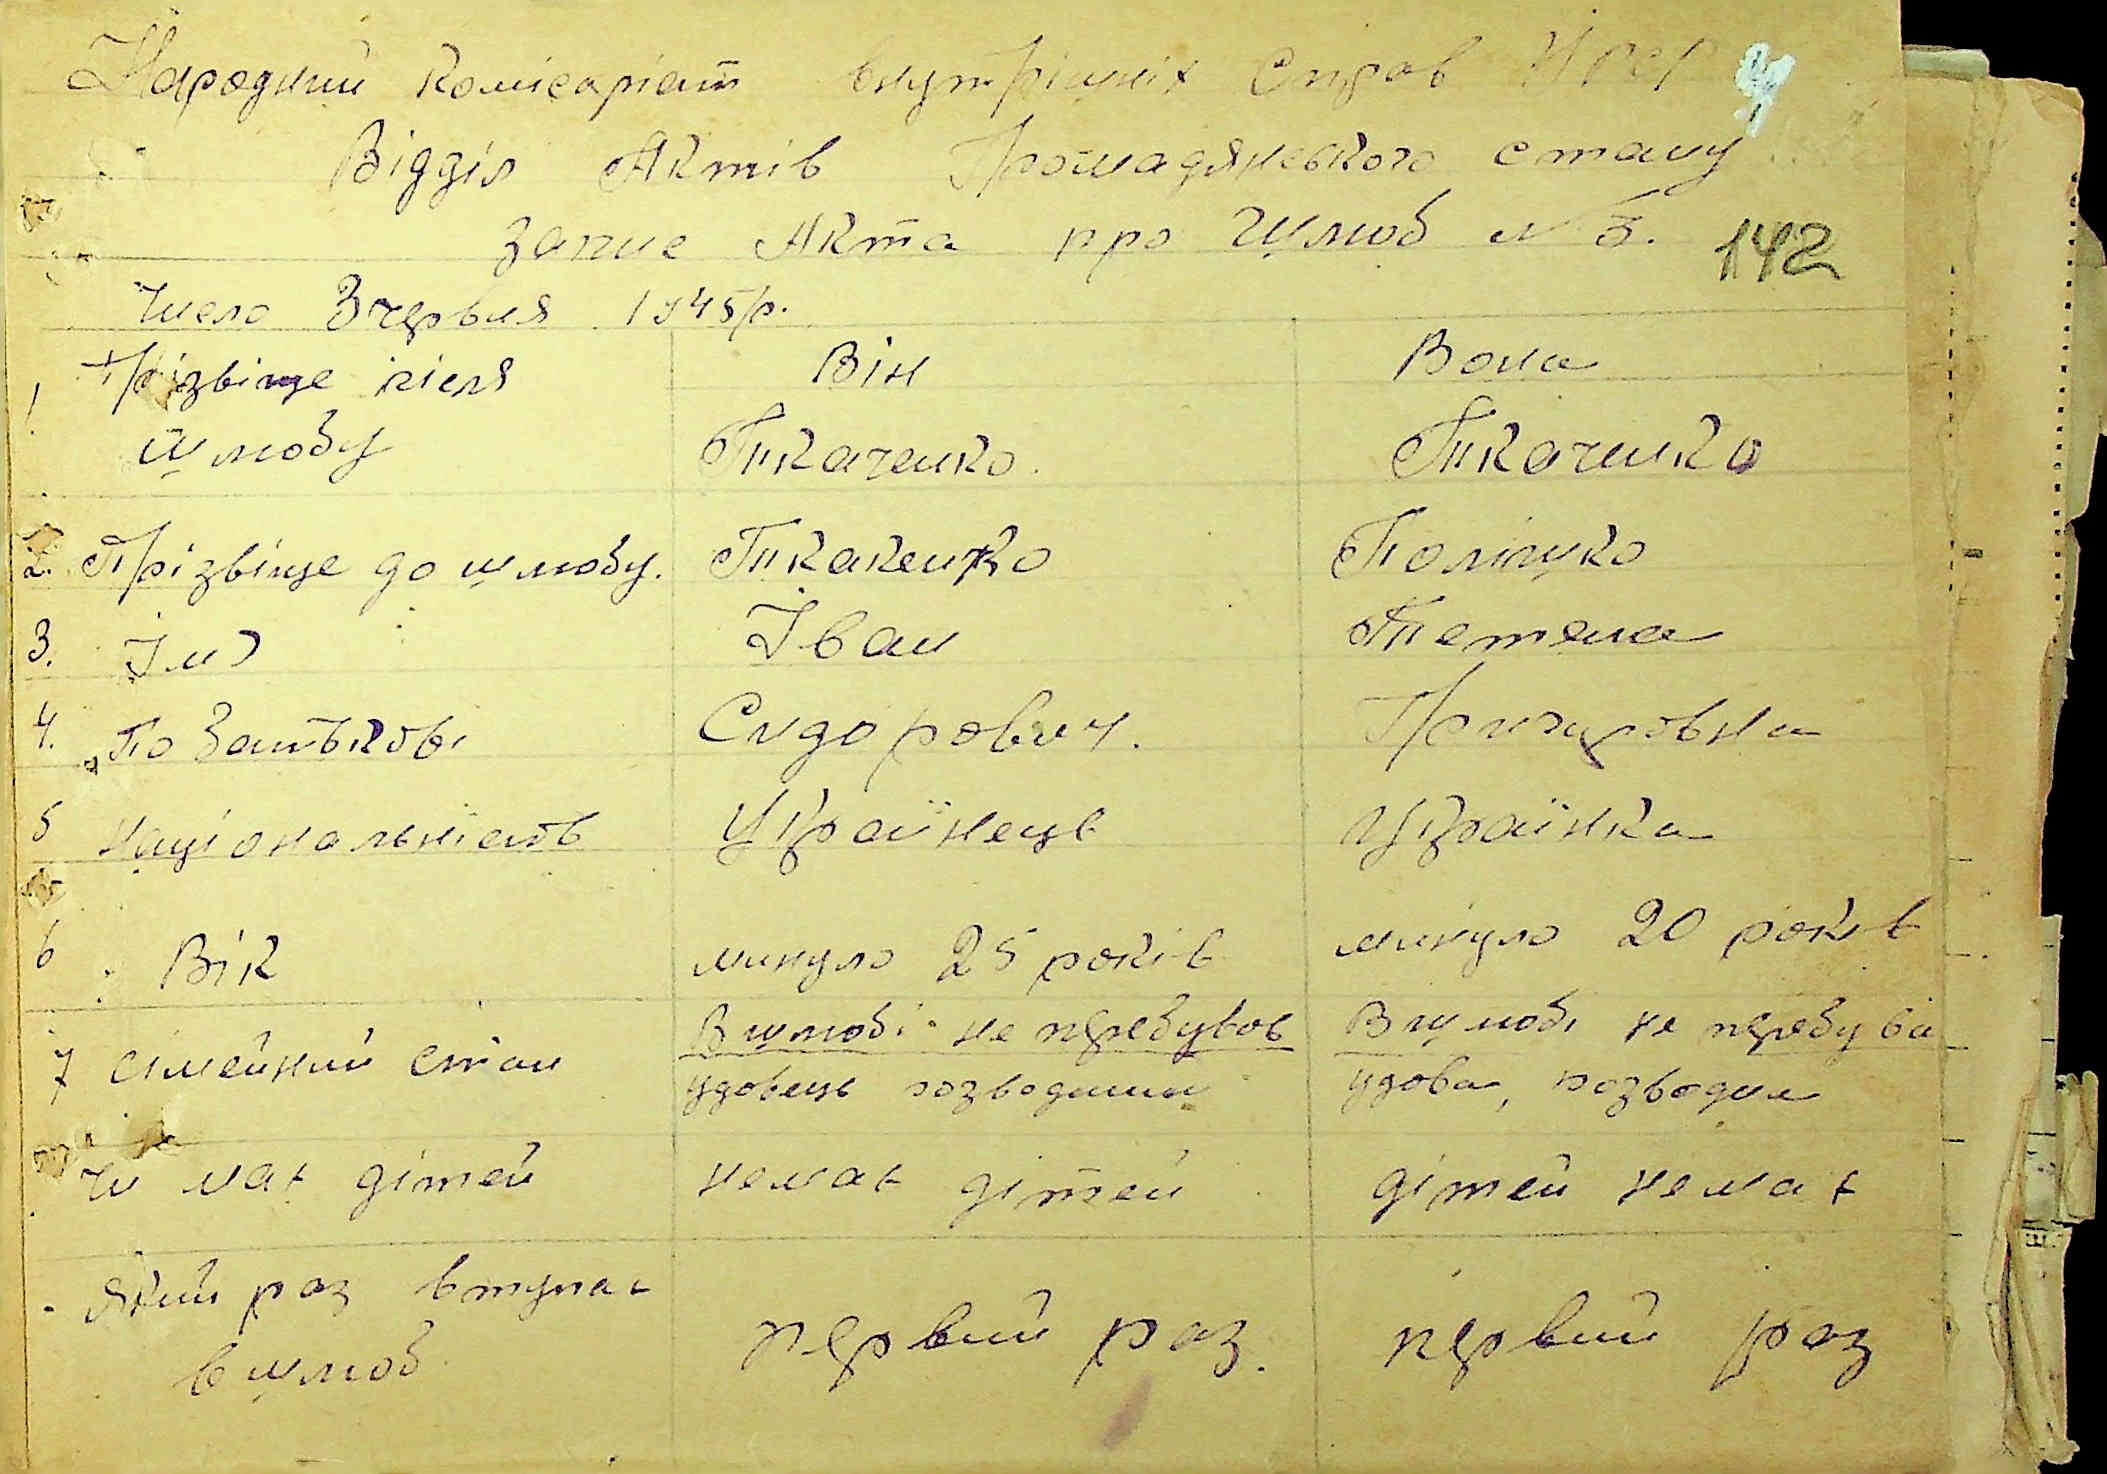 Народний Комісаріат Внутрішніх Справ УРСР
Відділ Актів Громадянського стану
Запис Акта про Шлюб N 3.
142
Число 3 червня 1945 р.
Він Вона
1 Прізвіще після
шлюбу Ткаченко. Ткаченко
2. Прізвіще до шлюбу. Ткаченко Поліщко
3. Імʼя Іван Тетяна
4. По Батькові Сидорович. Григоровна
5 Національність Українець Українка
6 Вік минуло 25 років минуло 20 років
7 сімейний стан В шлюбі не перебував В шлюбі не перебува
удовець розводний удова, розводна
Чи має дітей немає дітей дітей немає
Який раз втупає
в шлюб первий раз. первий раз